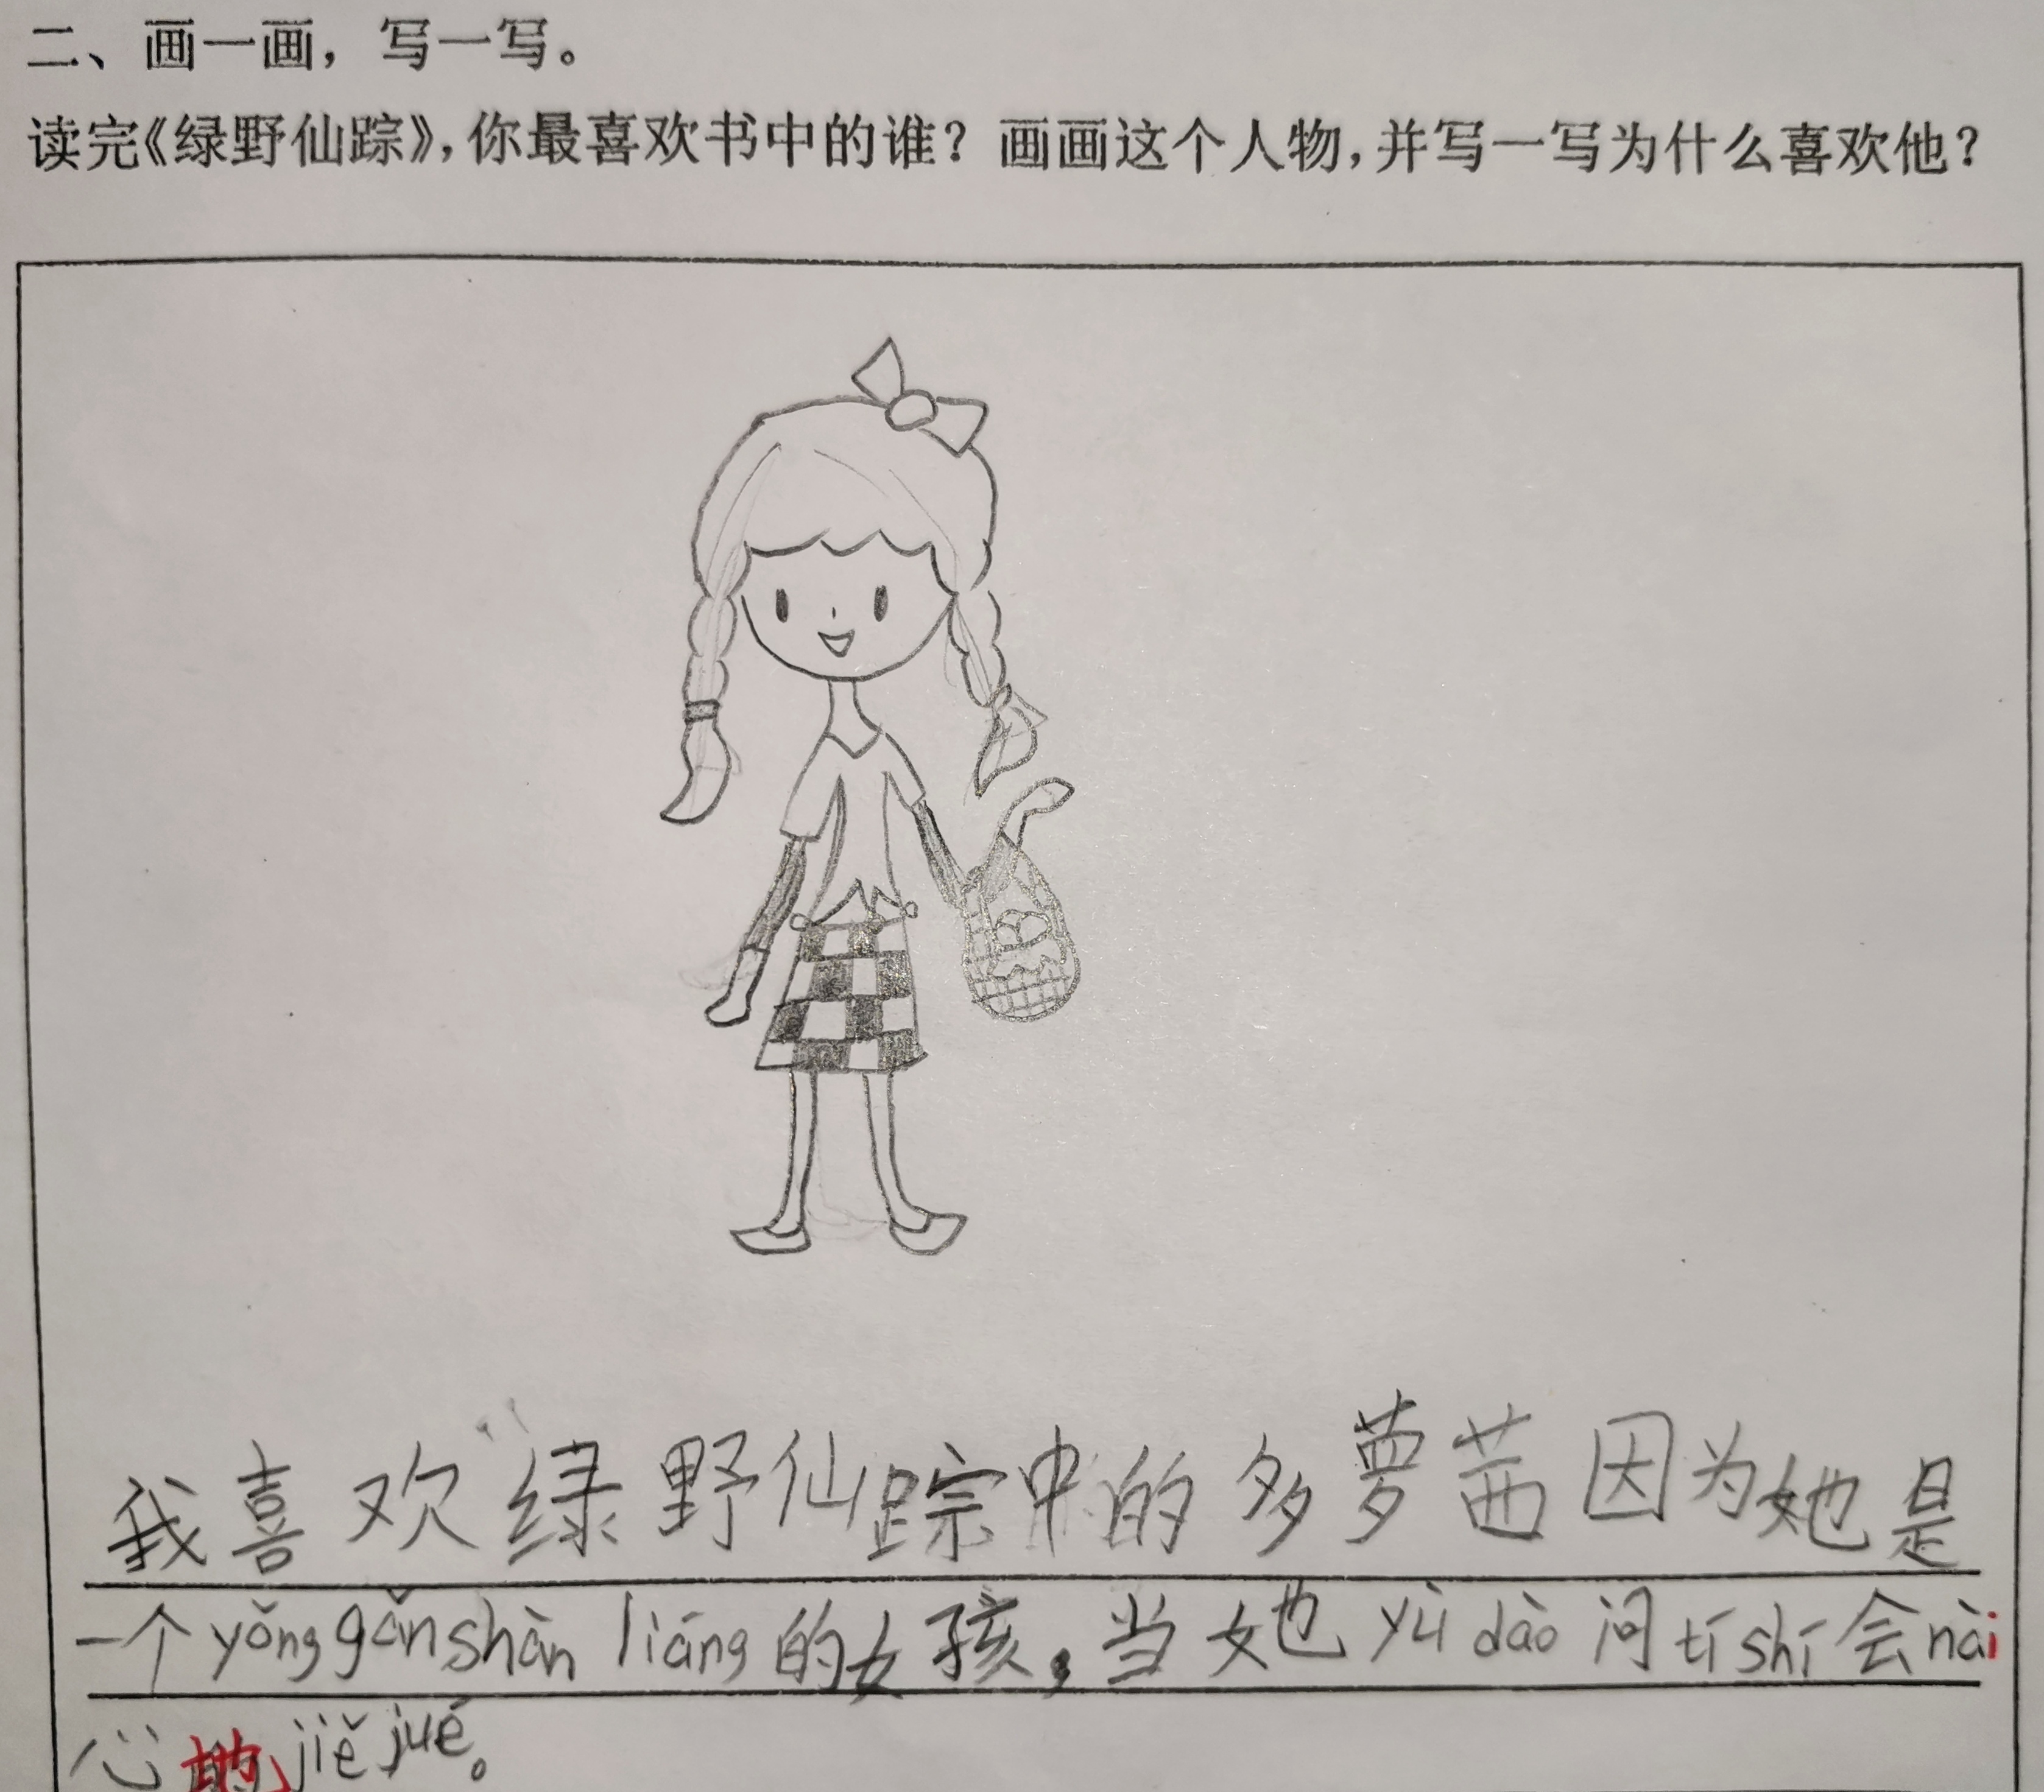 二、画一画，写一写。
读完《绿野仙踪》，你最喜欢书中的谁？画画这个人物，并写一写为什么喜欢他？
我喜欢绿野仙踪中的多萝茜因为她是
一个yǒnggǎnshàn liáng的女孩，当她yù dào问tí shí会nài
心地jiějué。